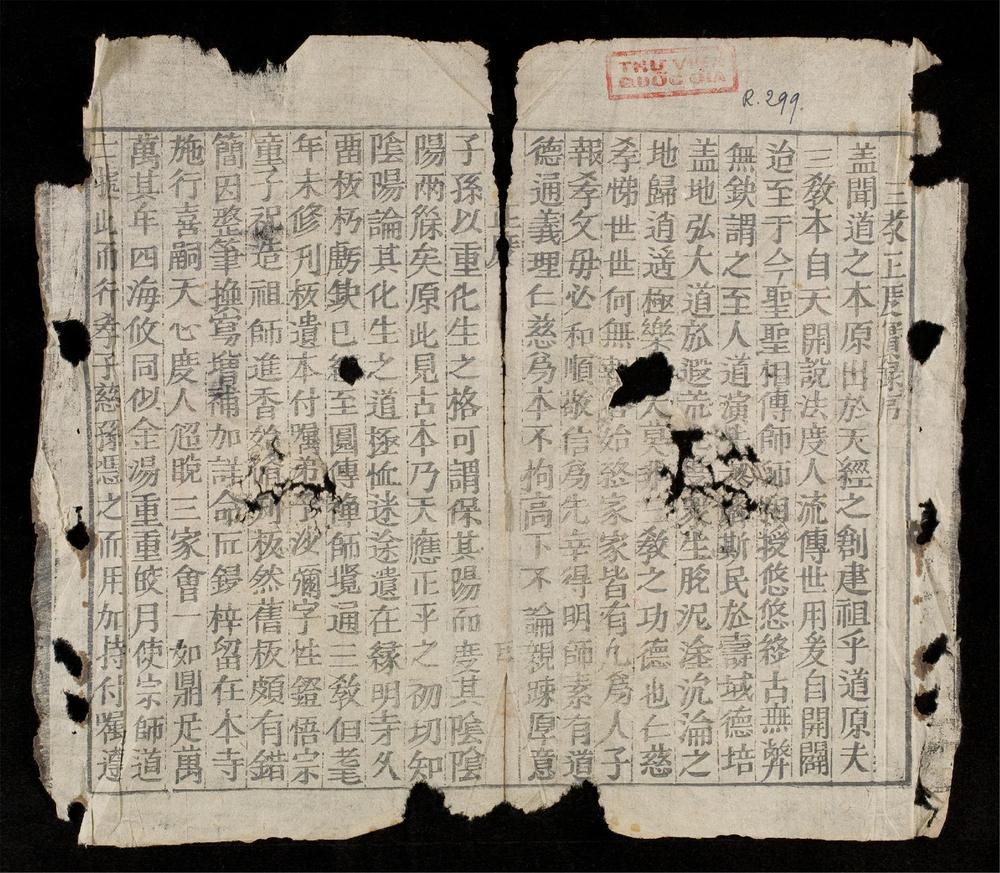 THƯ VIỆN
QUỐC GIA
R.299.
三教正度實錄序
盖聞道之本原出於天經之創建祖乎道原夫
三教本自天開說法度人流傳世用爰自開闢
迨至于今聖聖相傳師師相授悠悠終古無弊
無欽謂之至人道演 斯民於壽域德培
盖地弘大道於遐荒 生脫泥塗沉淪之
地歸逍遥極樂 天莫 教之功德也仁慈
孝悌世世何無 始終家家皆有凡爲人子
報孝父母必和順敬信爲先幸得明師素有道
德通義理仁慈爲本不拘高下不論親踈厚意
子孫以重化生之格可謂保其陽而度其陰陰
陽兩俻矣原此見古本乃天應正乎之初切知
陰陽論其化生之道極恤迷途遺在緣明寺久
畱板朽虧欽已 至圓傳禅師覧通三教但耄
年未修刋板遺本付囑弟子沙彌字性鐙悟宗
童子 造祖師進香 板然舊板頗有錯
簡因整筆換寫增補加註命匠鋟梓留在本寺
施行喜嗣天心度人超脫三家會一如鼎足萬
萬其年四海攸同似金湯重重皎月使宗師道
士 此而行孝子慈孫憑之而用加持付囑遵